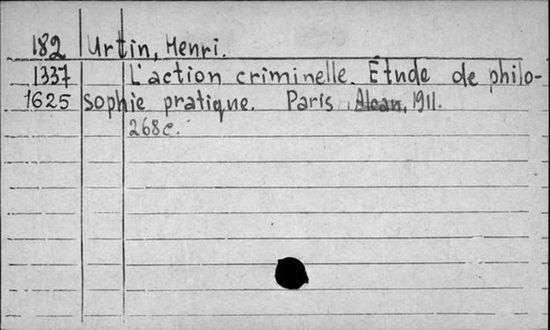 182 Urtin, Henri.
1337 L'action criminelle. Étude de philo-
1625 sophie pratique. Paris, Alcan, 1911.
268c.